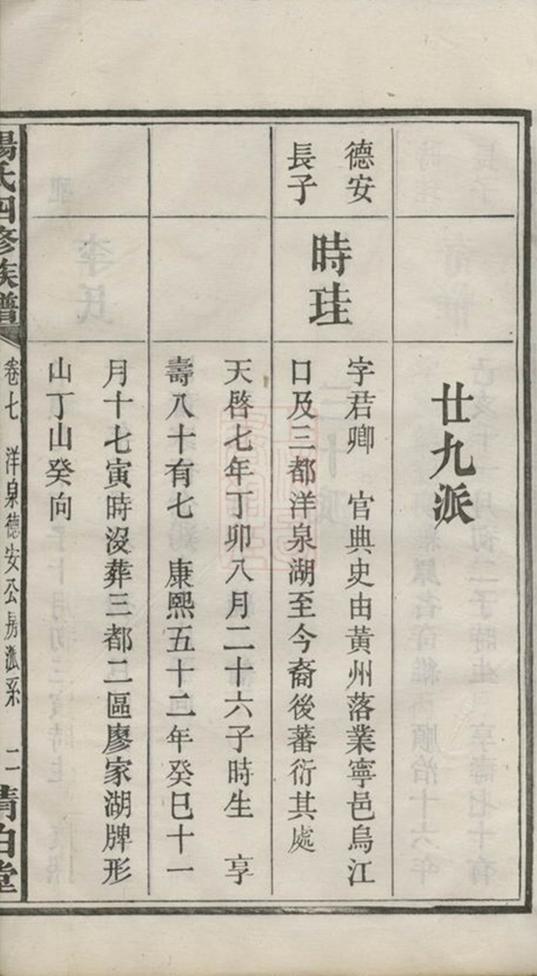 廿九派
德安
長子
時珪
字君卿　官典史由黃州落業寧邑烏江
口及三都洋泉湖至今裔後蕃衍其處
天啓七年丁卯八月二十六子時生　享
壽八十有七　康熙五十二年癸巳十一
月十七寅時沒葬三都二區廖家湖牌形
山丁山癸向
楊氏四修族譜
卷七　洋泉德安公房派系　二
清白堂